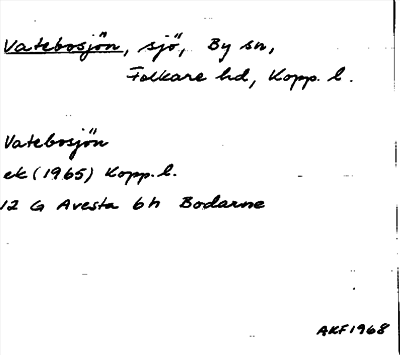 Vatebosjön, sjö, By sn,
Folkare hd, Kopp. l.
Vatebosjön
ek (1965) Kopp. l.
12 G Avesta 6 h Bodarne
AKF 1968